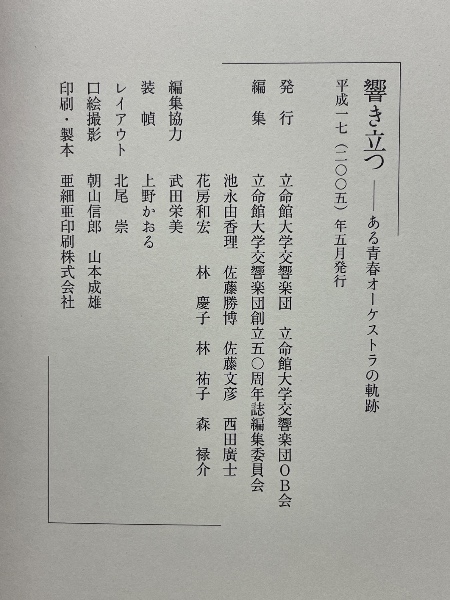 響き立つ ――ある青春オーケストラの軌跡
平成一七（二〇〇五）年五月発行
発行 立命館大学交響楽団 立命館大学交響楽団OB会
編集 立命館大学交響楽団創立五〇周年誌編集委員会
池永由香理 佐藤勝博 佐藤文彦 西田廣士
花房和宏 林慶子 林祐子 森禄介
編集協力 武田栄美
装幀 上野かおる
レイアウト 北尾崇
口絵撮影 朝山信郎 山本成雄
印刷・製本 亜細亜印刷株式会社